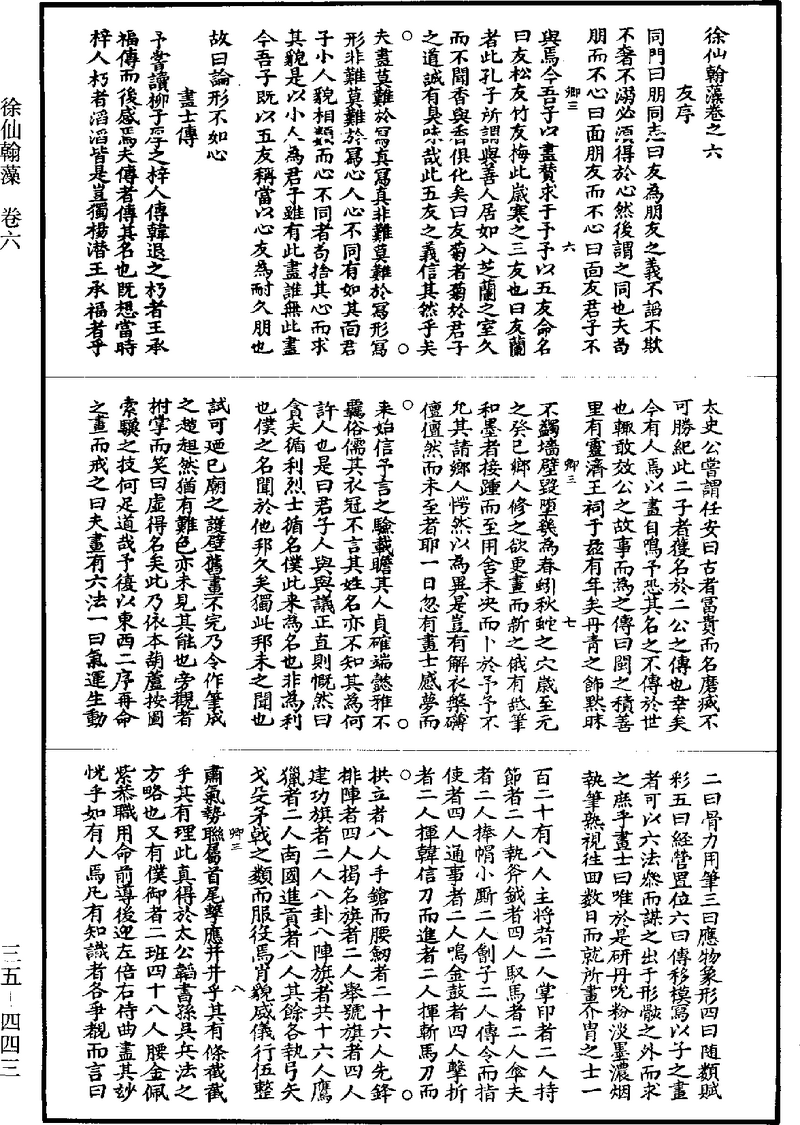 徐仙翰藻卷之六
友序
同門曰朋同志曰友為朋友之義不諂不欺
不奢不溺必須得於心然後謂之同也夫苟
朋而不心曰面朋友而不心曰面友君子不
與焉今吾子以畫贊求于予予以五友命名
曰友松友竹友梅此歲寒之三友也曰友蘭
者此孔子所謂與善人居如入芝蘭之室久
而不聞香與香俱化矣曰友菊者菊於君子
之道誠有臭味哉此五友之義信其然乎矣
夫畫莫難於寫真寫真非難莫難於寫形寫
形非難莫難於寫心人心不同有如其面君
子小人貌相類而心不同者苟捨其心而求
其貌是以小人為君子雖有此畫誰無此畫
今吾子既以五友稱當以心友為耐久朋也
故曰論形不如心
畫士傳
予嘗讀柳子厚之梓人傳韓退之朽者王承
福傳而後感焉夫傳者傳其名也既想當時
梓人朽者滔滔皆是豈獨楊潛王承福者乎
太史公嘗謂任安曰古者富貴而名磨滅不
可勝紀此二子者獲名於二公之傳也幸矣
今有人焉以畫自鳴予恐其名之不傳於世
也輒敢效公之故事而為之傳曰閩之積善
里有靈濟王祠于茲有年矣丹青之飾黙昧
不蠲墻壁毀墮幾為春蚓秋蛇之穴歲至元
之癸巳鄉人修之欲更畫而新之俄有舐筆
和墨者接踵而至用舍未决而卜於予予不
允其請鄉人愕然以為異是豈有解衣槃礴
儃儃然而未至者耶一日忽有畫士感夢而
来始信予言之驗載瞻其人貞確端懿雅不
羈俗儒其衣冠不言其姓名亦不知其為何
許人也是曰君子人與與議正直則慨然曰
貪夫循利烈士循名僕此来為名也非為利
也僕之名聞於他邦久矣獨此邦未之聞也
試可廼已廟之護壁舊畫不完乃令作筆成
之趑趄然猶有難色亦未見其能也旁觀者
拊掌而笑曰虛得名矣此乃依本葫蘆按圖
索驥之技何足道哉予復以東西二序再命
之畫而戒之曰夫畫有六法一曰氣運生動
二曰骨力用筆三曰應物象形四曰随類賦
彩五曰經營置位六曰傳移模寫以子之畫
者可以六法叅而謀之出于形骸之外而求
之庶乎畫士曰唯於是研丹吮粉淡墨濃烟
執筆熟視往囬數日而就所畫介胄之士一
百二十有八人主將者二人掌印者二人持
節者二人執斧鉞者四人馭馬者二人傘夫
者二人捧帽小厮二人劊子二人傳令而指
使者四人通事者二人鳴金鼓者四人擊折
者二人揮韓信刀而進者二人揮斬馬刀而
拱立者八人手鎗而腰劒者二十六人先鋒
排陣者四人揭名旗者二人舉號旗者四人
建功旗者二人八卦八陣旗者共十六人鷹
獵者二人南國進貢者八人其餘各執弓矢
戈殳矛戟之類而服役焉肖貌威儀行伍整
肅氣勢聮屬首尾擊應井井乎其有條截截
乎其有理此真得於太公韜書孫吳兵法之
方略也又有僕御者二班四十八人腰金佩
紫恭職用命前導後迎左倍右侍曲盡其妙
恍乎如有人焉凡有知識者各爭覩而言曰
卿三
六
卿三
七
卿三
八
徐仙翰藻　卷六
三五－四四三